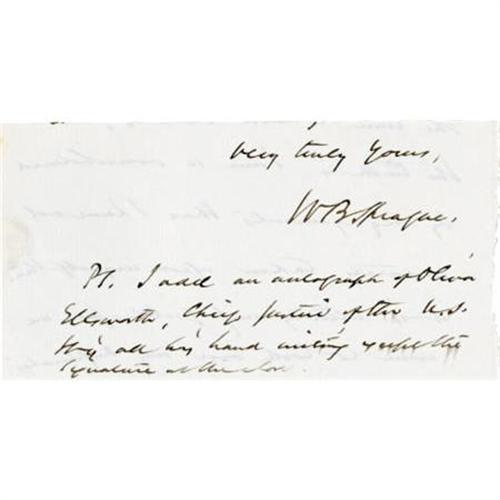 Very truly Yours,
W B Sprague.
Ps. I add an autograph of Oliver
Ellsworth, Chief Justice of the U.S.
His all his hand writing except the
signature at the close.